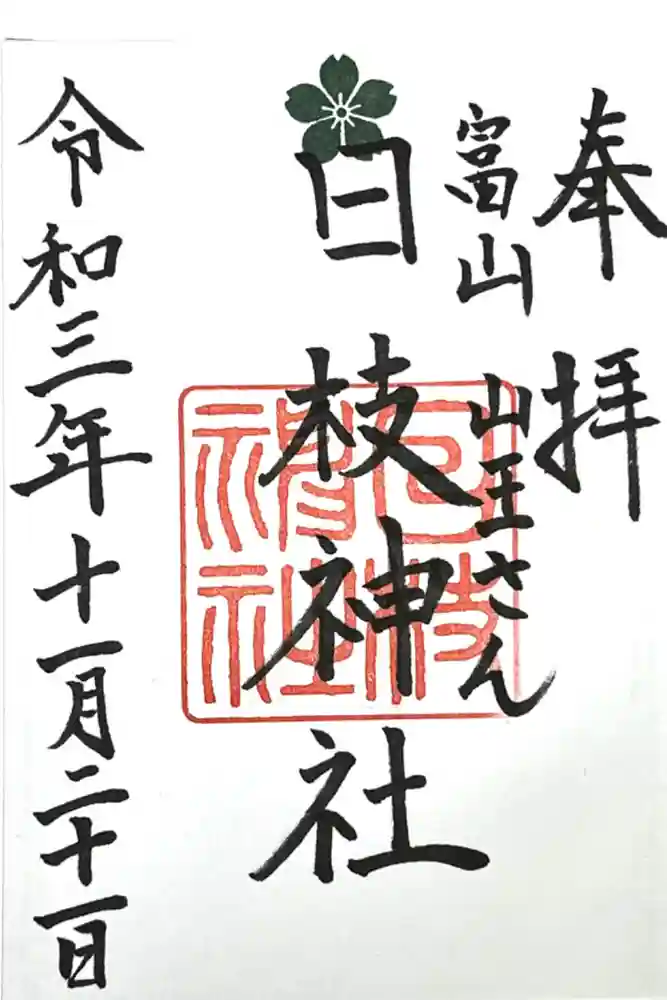 奉拝
富山
山王さん
日枝神社
日枝神社
令和三年十一月二十一日